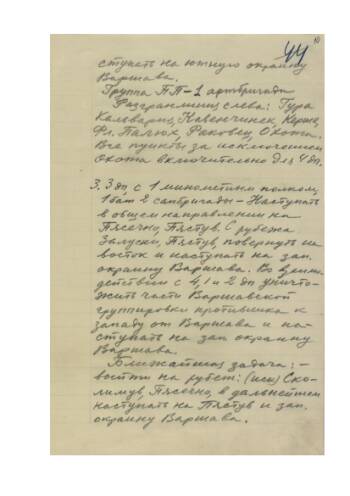 44
ступать на южную окраину
Варшава.
Группа ПП-1 артбригада
Разгранлиния слева: Гура
Кальвария,
Фл. Раковец, Охота.
Все пункты за исключением
Охота включительно для 4 дп.
3. 3 дп, с 1 минометным полком,
1 бат. 2 сапбригады – Наступать
в общем направлении на
Пясечно, Пястув. С рубежа
Залуски, Пястув, повернуть на
восток и наступать на зап.
окраину Варшава. Во взаимо-
действии с 4, 1 и 2 дп уничто-
жить части Варшавской
группировки противника к
западу от Варшава и на-
ступать на зап окраину
Варшава.
Ближайшая задача: –
выйти на рубеж: (иск) Ско-
лимув, Пясечно, в дальнейшем
наступать на Пястув и зап.
окраину Варшава.